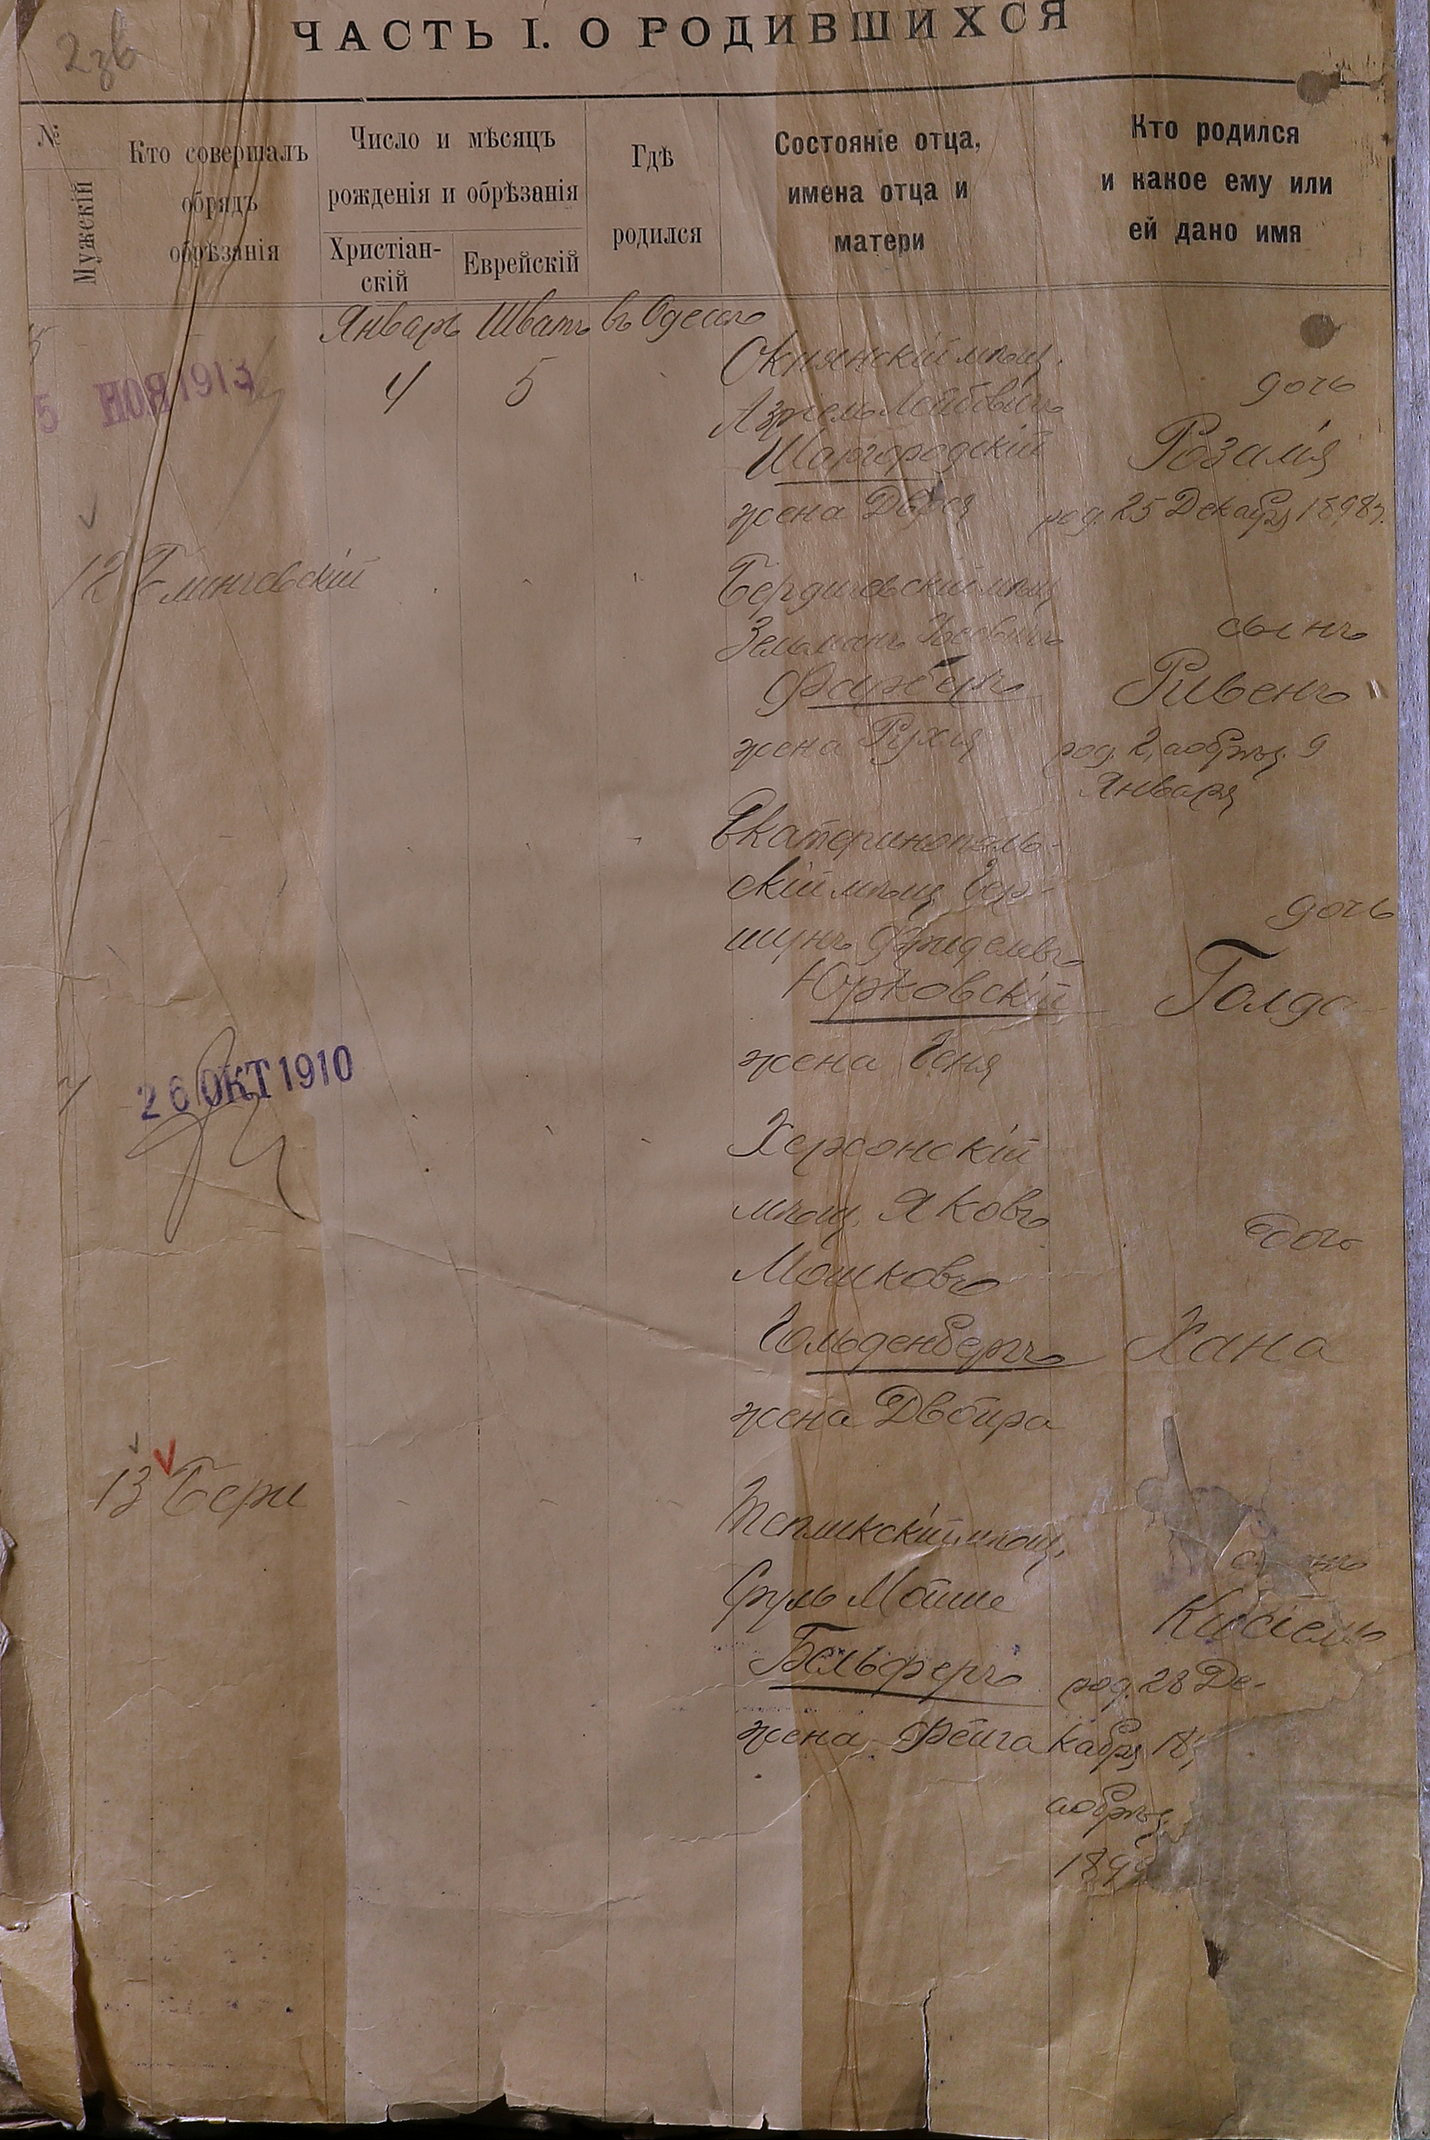 2зв
ЧАСТЬ I. О РОДИВШИХСЯ
№
Мужскій
Кто совершалъ
обрядъ
обрѣзанія
Число и мѣсяцъ
рожденія и обрѣзанія
Христіан-
скій
Еврейскій
Гдѣ
родился
Состояніе отца,
имена отца и
матери
Кто родился
и какое ему или
ей дано имя
Январь Шватъ въ Одессѣ
5 НОЯ 1913
4 5
Окнянскій мѣщ.
Лейбовичъ
Шаргородскій
жена Двося
дочь
Розалія
род. 25 Декабря 1898 г.
12
Бердичевскій мѣщ
Зельманъ
Фарберъ
жена Рухля
сынъ
Рувенъ
род. 2, а обрѣз. 9
Января
Екатеринополь-
скій мѣщ Гер-
шунъ Фриделевъ
Юрковскій
жена Геня
дочь
Голда
26 ОКТ 1910
Херсонскій
мѣщ. Яковъ
Мошковъ
Гольденбергъ
жена Двойра
дочь
Хана
13 Бери
Тепликскій мѣщ.
Сруль Мойше
Бельферъ
жена Фейга
сынъ
Кисіель
род. 28 Де-
кабря 18
а обрѣз.
189